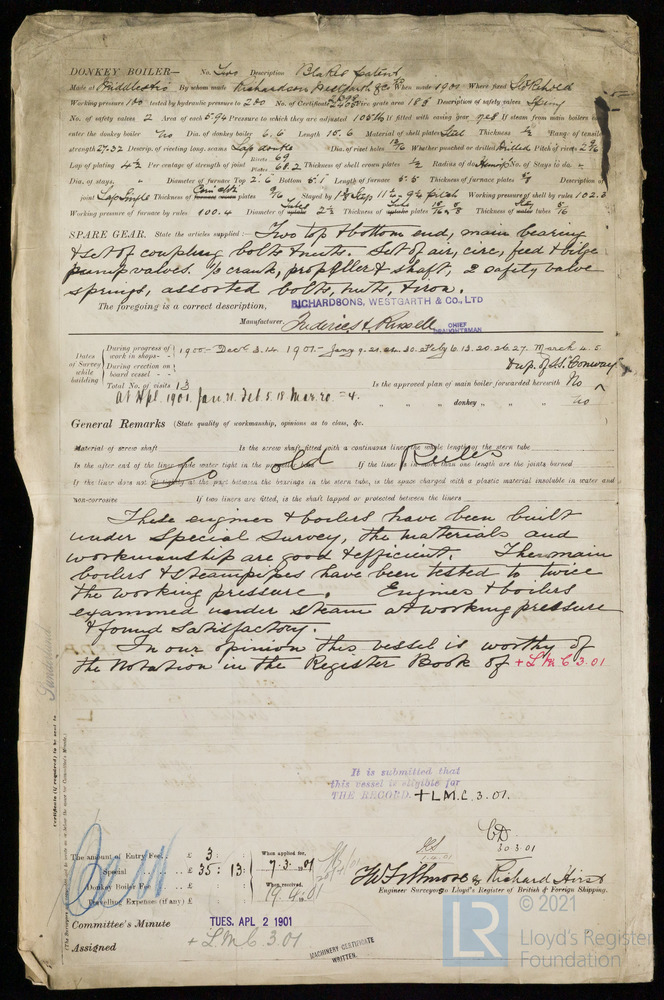 DONKEY BOILER— No. Two Description Blakes patent
Made at Middlesbro By whom made Richardson Westgarth & Co Ld When made 1901 Where fixed Stokehold
Working pressure 100 tested by hydraulic pressure to 200 No. of Certificate Fire grate area 18.5 Description of safety valves Spring
No. of safety valves 2 Area of each 5.94 Pressure to which they are adjusted 105 lb If fitted with easing gear yes If steam from main boilers can
enter the donkey boiler No Dia. of donkey boiler 6.6 Length 15.6 Material of shell plates Steel Thickness 1/2 Range of tensile
strength 27.32 Descrip. of riveting long. seams Lap double Dia. of rivet holes Whether punched or drilled Drilled Pitch of rivets
Lap of plating 4 1/2 Per centage of strength of joint Rivets 69 Plates 68.2 Thickness of shell crown plates 1/2 Radius of do. No. of Stays to do.
Dia. of stays, Diameter of furnace Top 2.6 Bottom 5.1 Length of furnace 5.5 Thickness of furnace plates Description of
joint Lap Single Thickness of plates 9/16 Stayed by Working pressure of shell by rules 102.3
Working pressure of furnace by rules 100.4 Diameter of Tubes 2 1/2 Thickness of plates Thickness of tubes
SPARE GEAR. State the articles supplied:— Two top & bottom end, main bearing
& set of coupling bolts & nuts. Set of air, circ, feed & bilge
pump valves. 1/3 crank, propeller & shaft, 2 safety valve
springs, assorted bolts, nuts, & iron.
The foregoing is a correct description,
RICHARDSONS, WESTGARTH & CO., LTD
Manufacturer. Frederick A Russell CHIEF DRAUGHTSMAN
Dates of Survey while building
During progress of work in shops - - 1900:- Dec 3.14. 1901:- Jany 9. 21. 24. 30. Feby 6. 13. 20. 26. 27. March 4. 5.
During erection on board vessel - - - & up. of SS. "Conway"
Total No. of visits 13
At Hpl. 1901. Jan. 21. Feb 5. 18 Mar. 20. = 4.
Is the approved plan of main boiler forwarded herewith No
" " " donkey " " " No
General Remarks (State quality of workmanship, opinions as to class, &c.
Material of screw shaft Is the screw shaft fitted with a continuous liner the whole length of the stern tube
Is the after end of the liner made water tight in the propeller boss If the liner is in more than one length are the joints burned
If the liner does not fit tightly at the part between the bearings in the stern tube, is the space charged with a plastic material insoluble in water and
non-corrosive If two liners are fitted, is the shaft lapped or protected between the liners
To old Rules
These engines & boilers have been built
under Special Survey, the materials and
workmanship are good & efficient. The main
boilers & steampipes have been tested to twice
the working pressure. Engines & boilers
examined under steam at working pressure
& found satisfactory.
In our opinion this vessel is worthy of
the notation in the Register Book of + L.M.C 3.01
Sunderland
Certificate (if required) to be sent to
It is submitted that
this vessel is eligible for
THE RECORD. + L.M.C. 3.01.
CD
30.3.01
The amount of Entry Fee. . £ 3 : : When applied for,
Special . . . . £ 35 : 13 : 7.3.1901
Donkey Boiler Fee . . . £ : : When received,
Travelling Expenses (if any) £ : : 19.4.01
& Richard Hirst
Engineer Surveyors to Lloyd's Register of British & Foreign Shipping.
Committee's Minute TUES. APL 2 1901
Assigned + L.M.C. 3.01
MACHINERY CERTIFICATE
WRITTEN.
© 2021
LR
Lloyd's Register
Foundation